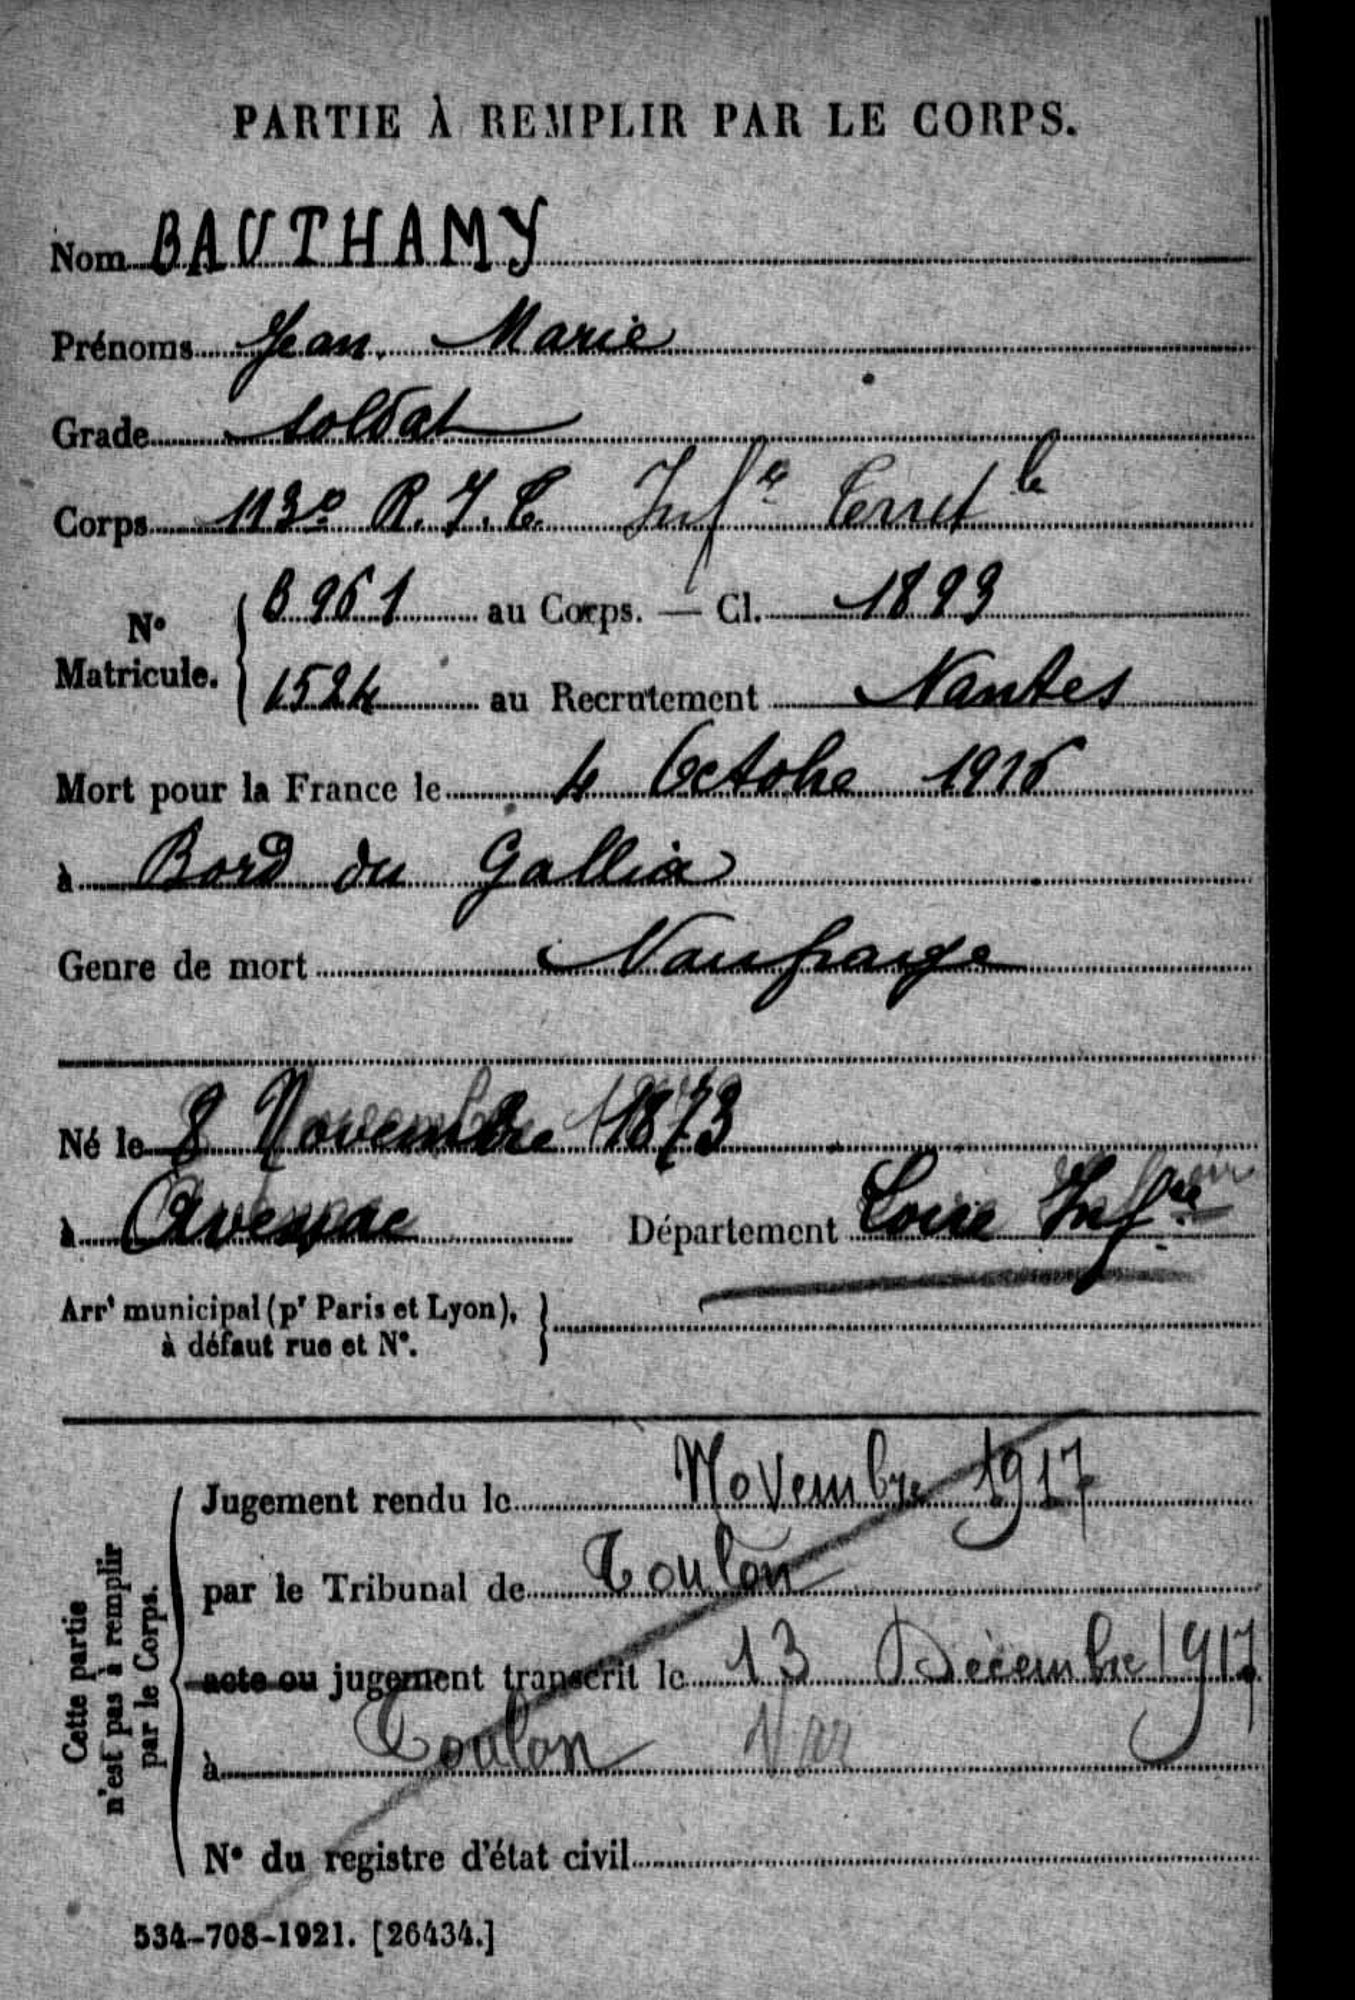 PARTIE À REMPLIR PAR LE CORPS.
Nom BAUTHAMY
Prénoms Jean Marie
Grade soldat
Corps 113e R.I.T. Infie Territle
N° Matricule. B 961 au Corps. — Cl. 1893
1524 au Recrutement Nantes
Mort pour la France le 4 Octobre 1916
à Bord du Gallia
Genre de mort Naufrage
Né le 8 Novembre 1873
à Avessac Département Loire Infre
Arrt municipal (pr Paris et Lyon), à défaut rue et N°.
Cette partie n'est pas à remplir par le Corps.
Jugement rendu le Novembre 1917
par le Tribunal de Toulon
acte ou jugement transcrit le 13 Décembre 1917
à Toulon Var
N° du registre d'état civil
534-708-1921. [26434.]